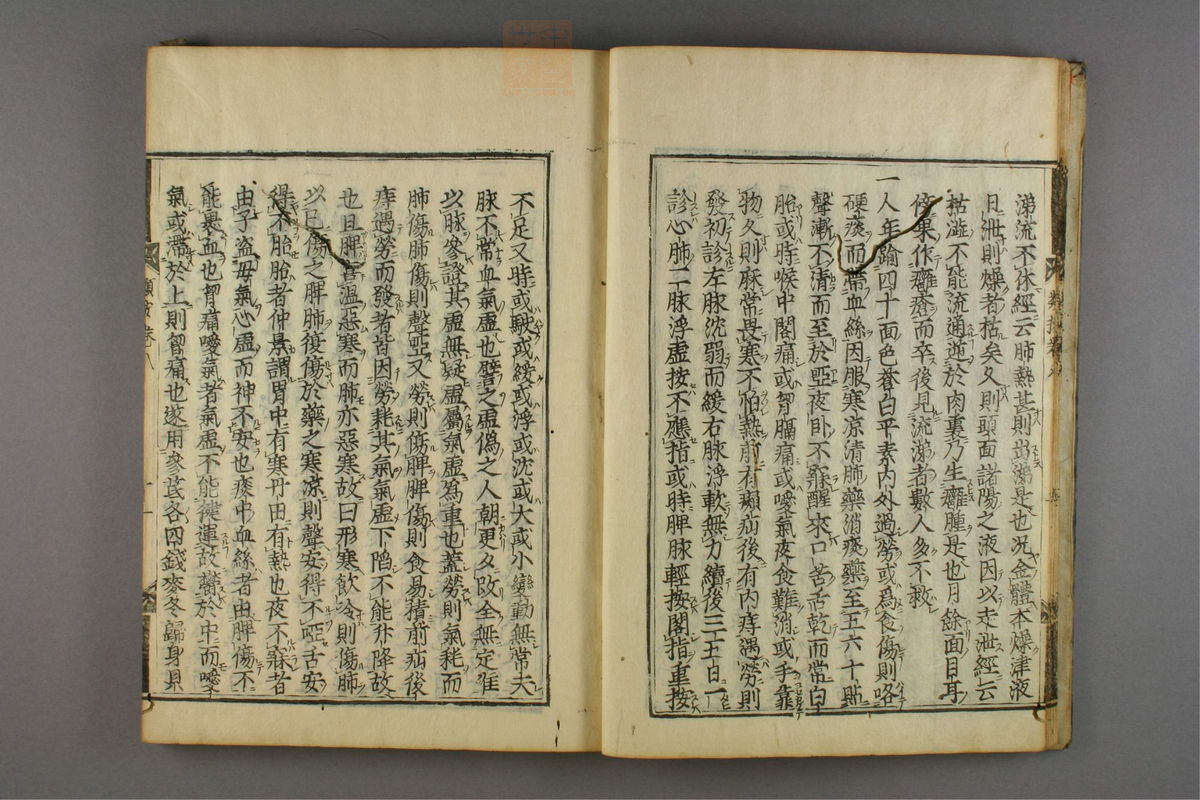 涕流不休經云肺熱甚則出涕是也況金體本燥津液
日泄則燥者枯矣久則頭面諸陽之液因以走泄經云
枯澁不能流通逆於肉裏乃生癰腫是也月餘面目耳
傍果作癰瘡而卒後見流涕者數人多不救
一人年踰四十面色蒼白平素內外過勞或爲食傷則咯
硬痰而帶血絲因服寒凉清肺藥消痰藥至五六十貼
聲漸不清而至於啞夜卧不寐醒來口苦舌乾而常白
胎或時喉中閣痛或胷膈痛或噯氣夜食難消或手靠
物久則麻常畏寒不怕熱前有癩疝後有內痔遇勞則
發初診左脉沈弱而緩右脉浮軟無力續後三五日一
診心肺二脉浮虛按不應指或時脾脉輕按閣指重按
不足又時或駃或緩或浮或沈或大或小變動無常夫
脉不常血氣虛也譬之虛僞之人朝更夕改全無定準
以脉參證其虛無疑虛屬氣虛爲重也蓋勞則氣耗而
肺傷肺傷則聲啞又勞則傷脾脾傷則食易積前疝後
痔遇勞而發者皆因勞耗其氣氣虛下陷不能升降故
也且脾喜溫惡寒而肺亦惡寒故曰形寒飮冷則傷肺
以已傷之脾肺復傷於藥之寒凉則聲安得不啞舌安
得不胎胎者仲景謂胃中有寒丹田有熱也夜不寐者
由子盜母氣心虛而神不安也痰中血絲者由脾傷不
能裹血也胷痛噯氣者氣虛不能健運故鬱於中而噯
氣或滯於上則胷痛也遂用參芪各四錢麥冬歸身貝
類按卷八